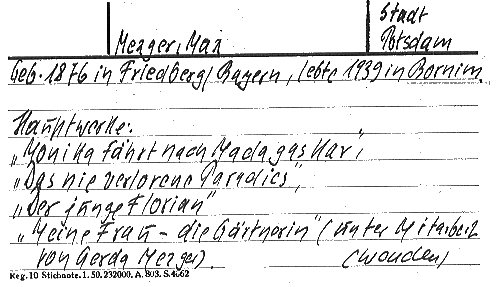 Mezger, Max
Stadt
Potsdam
Geb. 1876 in Friedberg/Bayern, lebte 1939 in Bornim
Hauptwerke:
„Monika fährt nach Madagaskar",
„Das nie verlorene Paradies",
„Der junge Florian"
„Meine Frau – die Gärtnerin" (unter Mitarbeit
von Gerda Mezger). (Wouden)
Reg. 10 Stichnote. 1. 50. 232000. A. 803. S. 4662